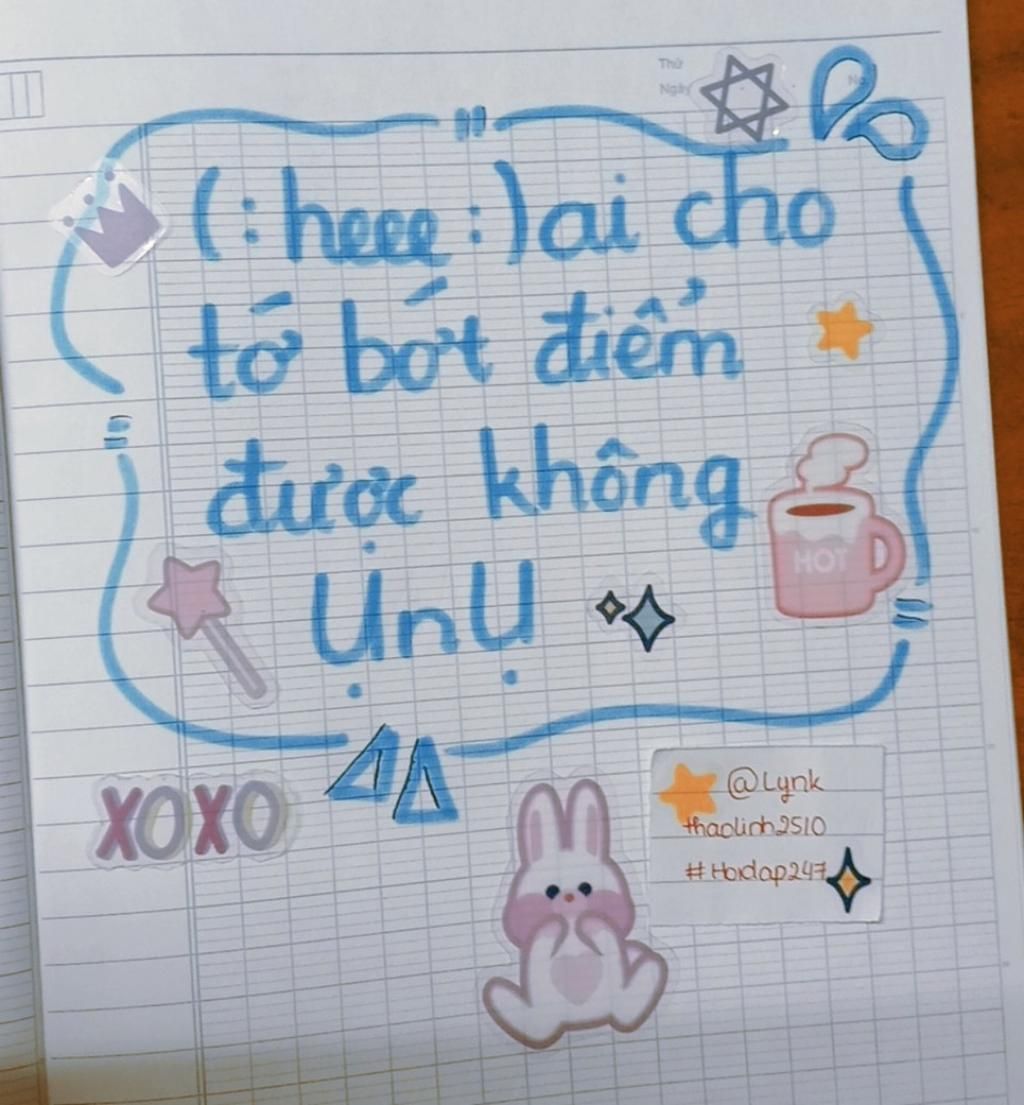 Thứ
Ngày
No.
(:heee:) ai cho
tớ bớt điểm
được không
ỤnỤ
HOT
XOXO
@Lynk
thaolinh2510
#Hoidap247